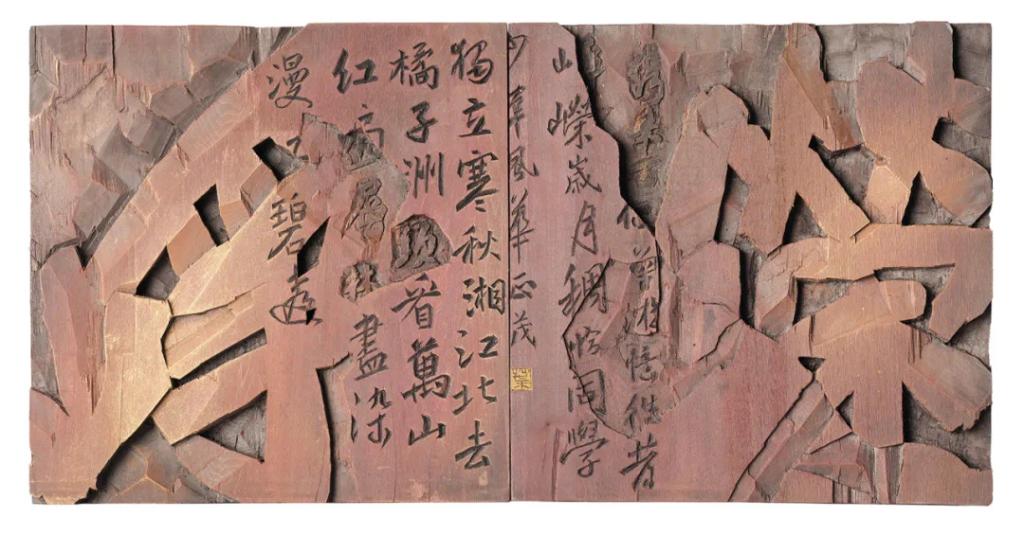 侣曾遊憶往昔
嶸歲月稠恰同學
少年風華正茂
獨立寒秋湘江北去
橘子洲頭看萬山
红遍層林盡染
漫江碧透